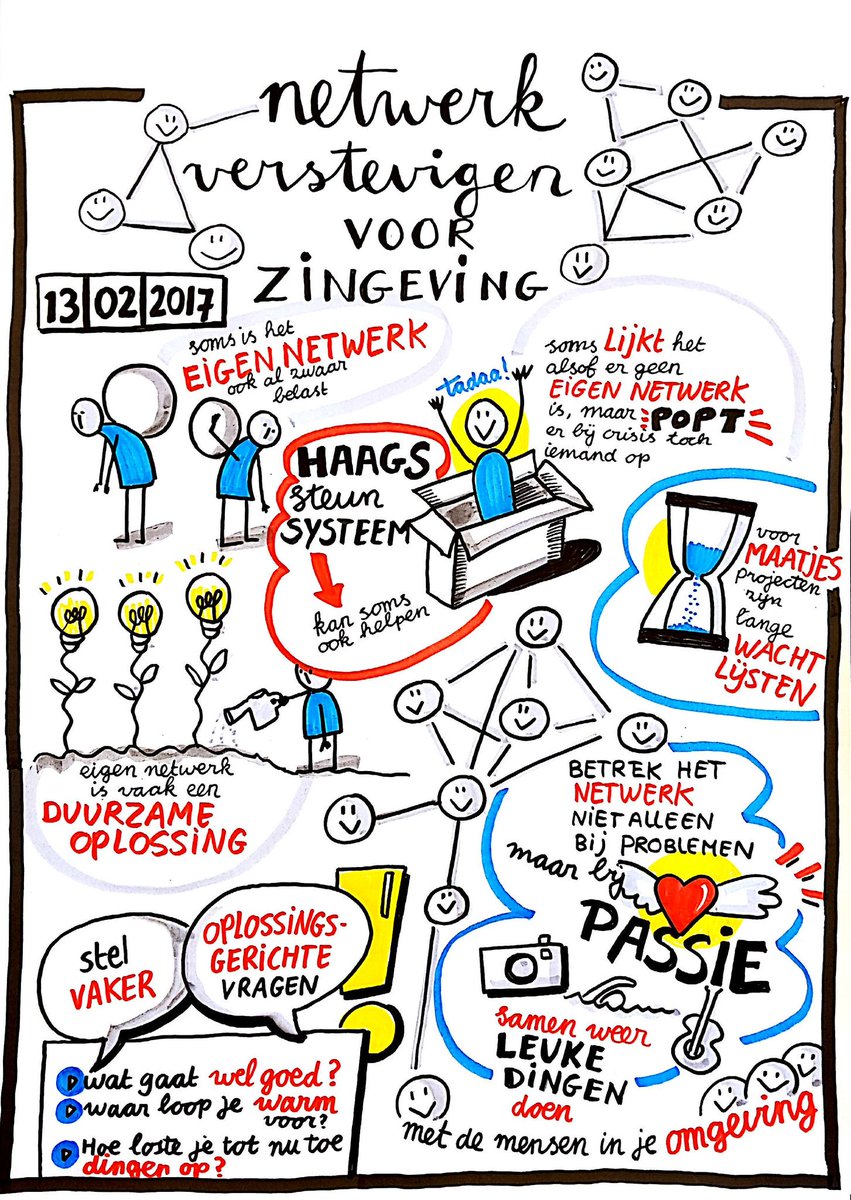 netwerk
verstevigen
VOOR
ZINGEVING
13 02 2017
soms is het
EIGEN NETWERK
ook al zwaar
belast
tadaa!
soms LIJKT het
alsof er geen
EIGEN NETWERK
is, maar POPT
er bij crisis toch
iemand op
HAAGS
steun
SYSTEEM
kan soms
ook helpen
voor
MAATJES
projecten
zijn
lange
WACHT
LIJSTEN
eigen netwerk
is vaak een
DUURZAME
OPLOSSING
BETREK HET
NETWERK
NIET ALLEEN
BIJ PROBLEMEN
maar bij
PASSIE
samen weer
LEUKE
DINGEN
doen
met de mensen in je omgeving
stel
VAKER
OPLOSSINGS-
GERICHTE
VRAGEN
wat gaat wel goed?
waar loop je warm
voor?
Hoe loste je tot nu toe
dingen op?